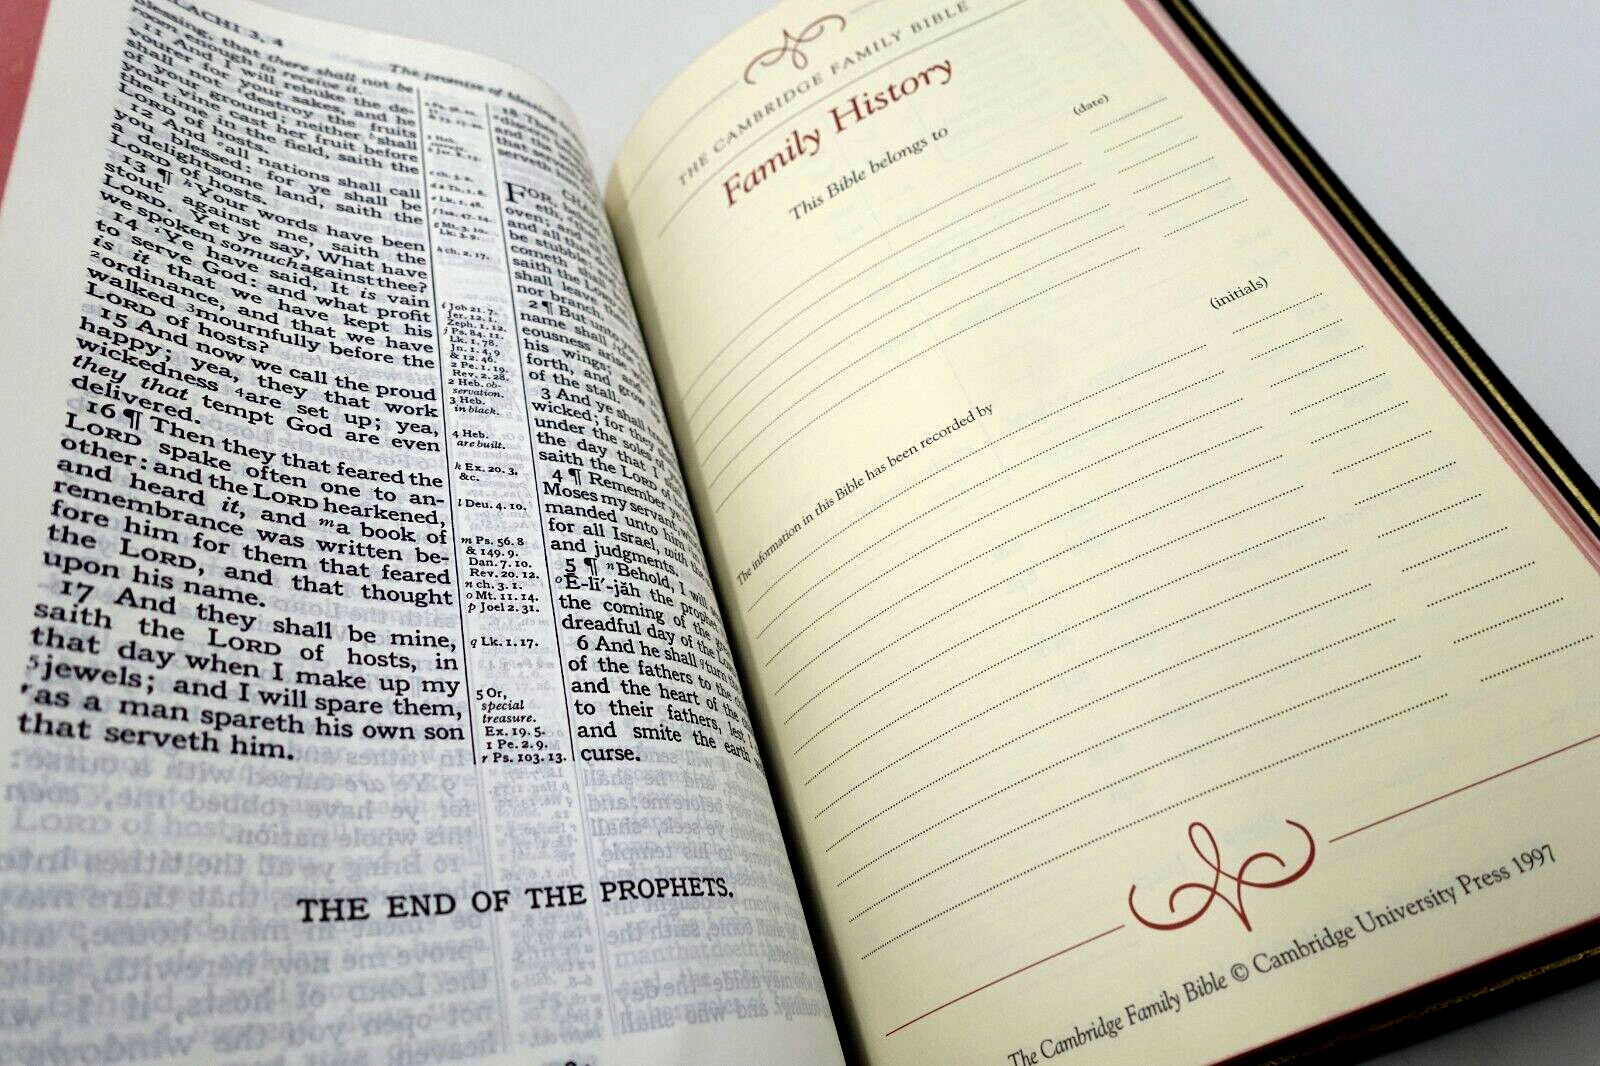 LACHI 3, 4
The promise of blessing
blessing, that there shall not be
room enough to receive it.
11 And I will rebuke the de-
vourer for your sakes, and he
shall not destroy the fruits
of your ground; neither shall
your vine cast her fruit before
the time in the field, saith the
LORD of hosts.
12 And all nations shall call
you blessed: for ye shall be
a delightsome land, saith the
LORD of hosts.
13 ¶ h Your words have been
stout against me, saith the
LORD. Yet ye say, What have
we spoken so much against thee?
14 i Ye have said, It is vain
to serve God: and what profit
is it that we have kept his
2 ordinance, and that we have
walked 3 mournfully before the
LORD of hosts?
15 And now we call the proud
happy; yea, they that work
wickedness 4 are set up; yea,
they that tempt God are even
delivered.
16 ¶ Then they that feared the
LORD spake often one to an-
other: and the LORD hearkened,
and heard it, and m a book of
remembrance was written be-
fore him for them that feared
the LORD, and that thought
upon his name.
17 And they shall be mine,
saith the LORD of hosts, in
that day when I make up my
5 jewels; and I will spare them,
r as a man spareth his own son
that serveth him.
h ch. 2. 17.
i Job 21. 7.
Jer. 12. 1.
Zeph. 1. 12.
j Ps. 84. 11.
Lk. 1. 78.
Jn. 1. 4, 9
& 12. 46.
2 Pe. 1. 19.
Rev. 2. 28.
2 Heb. ob-
servation.
3 Heb.
in black.
4 Heb.
are built.
k Ex. 20. 3,
&c.
l Deu. 4. 10.
m Ps. 56. 8
& 149. 9.
Dan. 7. 10.
Rev. 20. 12.
n ch. 3. 1.
o Mt. 11. 14.
p Joel 2. 31.
q Lk. 1. 17.
5 Or,
special
treasure.
Ex. 19. 5.
1 Pe. 2. 9.
r Ps. 103. 13.
18 Then
and the
serveth
FOR,
oven; and
and all tha
be stubble
cometh sha
saith the LOR
shall leave
nor branch.
2 ¶ But unto
name shall
eousness arise
his wings; and
forth, and grow
of the stall.
3 And ye shall
wicked; for they
under the soles of
the day that I
saith the LORD of
4 ¶ Remember ye
Moses my servant,
manded unto him
for all Israel, with
and judgments.
5 ¶ n Behold, I will
o Ē-lī′-jăh the proph
the coming of the
dreadful day of the LO
6 And he shall q turn
of the fathers to the
and the heart of the
to their fathers, lest I
and smite the earth
curse.
THE END OF THE PROPHETS.
THE CAMBRIDGE FAMILY BIBLE
Family History
This Bible belongs to
(date)
The information in this Bible has been recorded by
(initials)
The Cambridge Family Bible © Cambridge University Press 1997